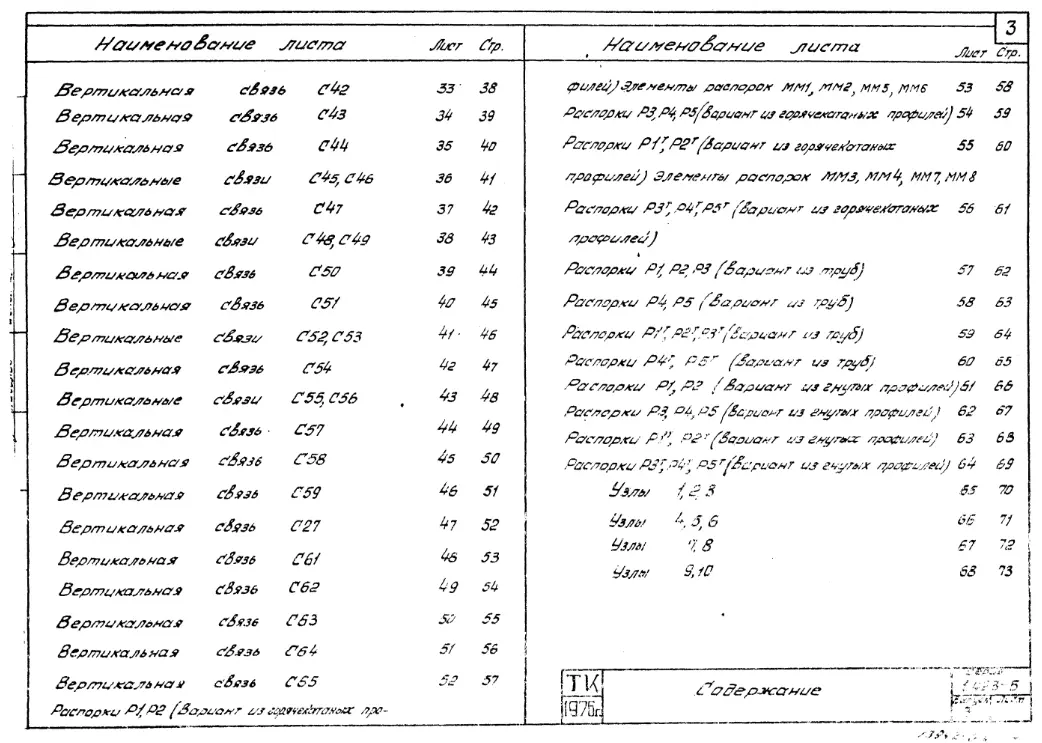 3
Наименование листа Лист Стр.
Вертикальная связь С42 33 38
Вертикальная связь С43 34 39
Вертикальная связь С44 35 40
Вертикальные связи С45, С46 36 41
Вертикальная связь С47 37 42
Вертикальные связи С48, С49 38 43
Вертикальная связь С50 39 44
Вертикальная связь С51 40 45
Вертикальные связи С52, С53 41 46
Вертикальная связь С54 42 47
Вертикальные связи С55, С56 43 48
Вертикальная связь С57 44 49
Вертикальная связь С58 45 50
Вертикальная связь С59 46 51
Вертикальная связь С27 47 52
Вертикальная связь С61 48 53
Вертикальная связь С62 49 54
Вертикальная связь С63 50 55
Вертикальная связь С64 51 56
Вертикальная связь С65 52 57
Распорки Р1, Р2 (Вариант из горячекатаных про-
Наименование листа Лист Стр.
филей) Элементы распорок ММ1, ММ2, ММ5, ММ6 53 58
Распорки Р3, Р4, Р5 (Вариант из горячекатаных профилей) 54 59
Распорки Р1ᵀ, Р2ᵀ (Вариант из горячекатаных 55 60
профилей) Элементы распорок ММ3, ММ4, ММ7, ММ8
Распорки Р3ᵀ, Р4ᵀ, Р5ᵀ (Вариант из горячекатаных 56 61
профилей)
Распорки Р1, Р2, Р3 (Вариант из труб) 57 62
Распорки Р4, Р5 (Вариант из труб) 58 63
Распорки Р1ᵀ, Р2ᵀ, Р3ᵀ (Вариант из труб) 59 64
Распорки Р4ᵀ, Р5ᵀ (Вариант из труб) 60 65
Распорки Р1, Р2 (Вариант из гнутых профилей) 61 66
Распорки Р3, Р4, Р5 (Вариант из гнутых профилей) 62 67
Распорки Р1ᵀ, Р2ᵀ (Вариант из гнутых профилей) 63 68
Распорки Р3ᵀ, Р4ᵀ, Р5ᵀ (Вариант из гнутых профилей) 64 69
Узлы 1, 2, 3 65 70
Узлы 4, 5, 6 66 71
Узлы 7, 8 67 72
Узлы 9, 10 68 73
ТК
1975г.
Содержание